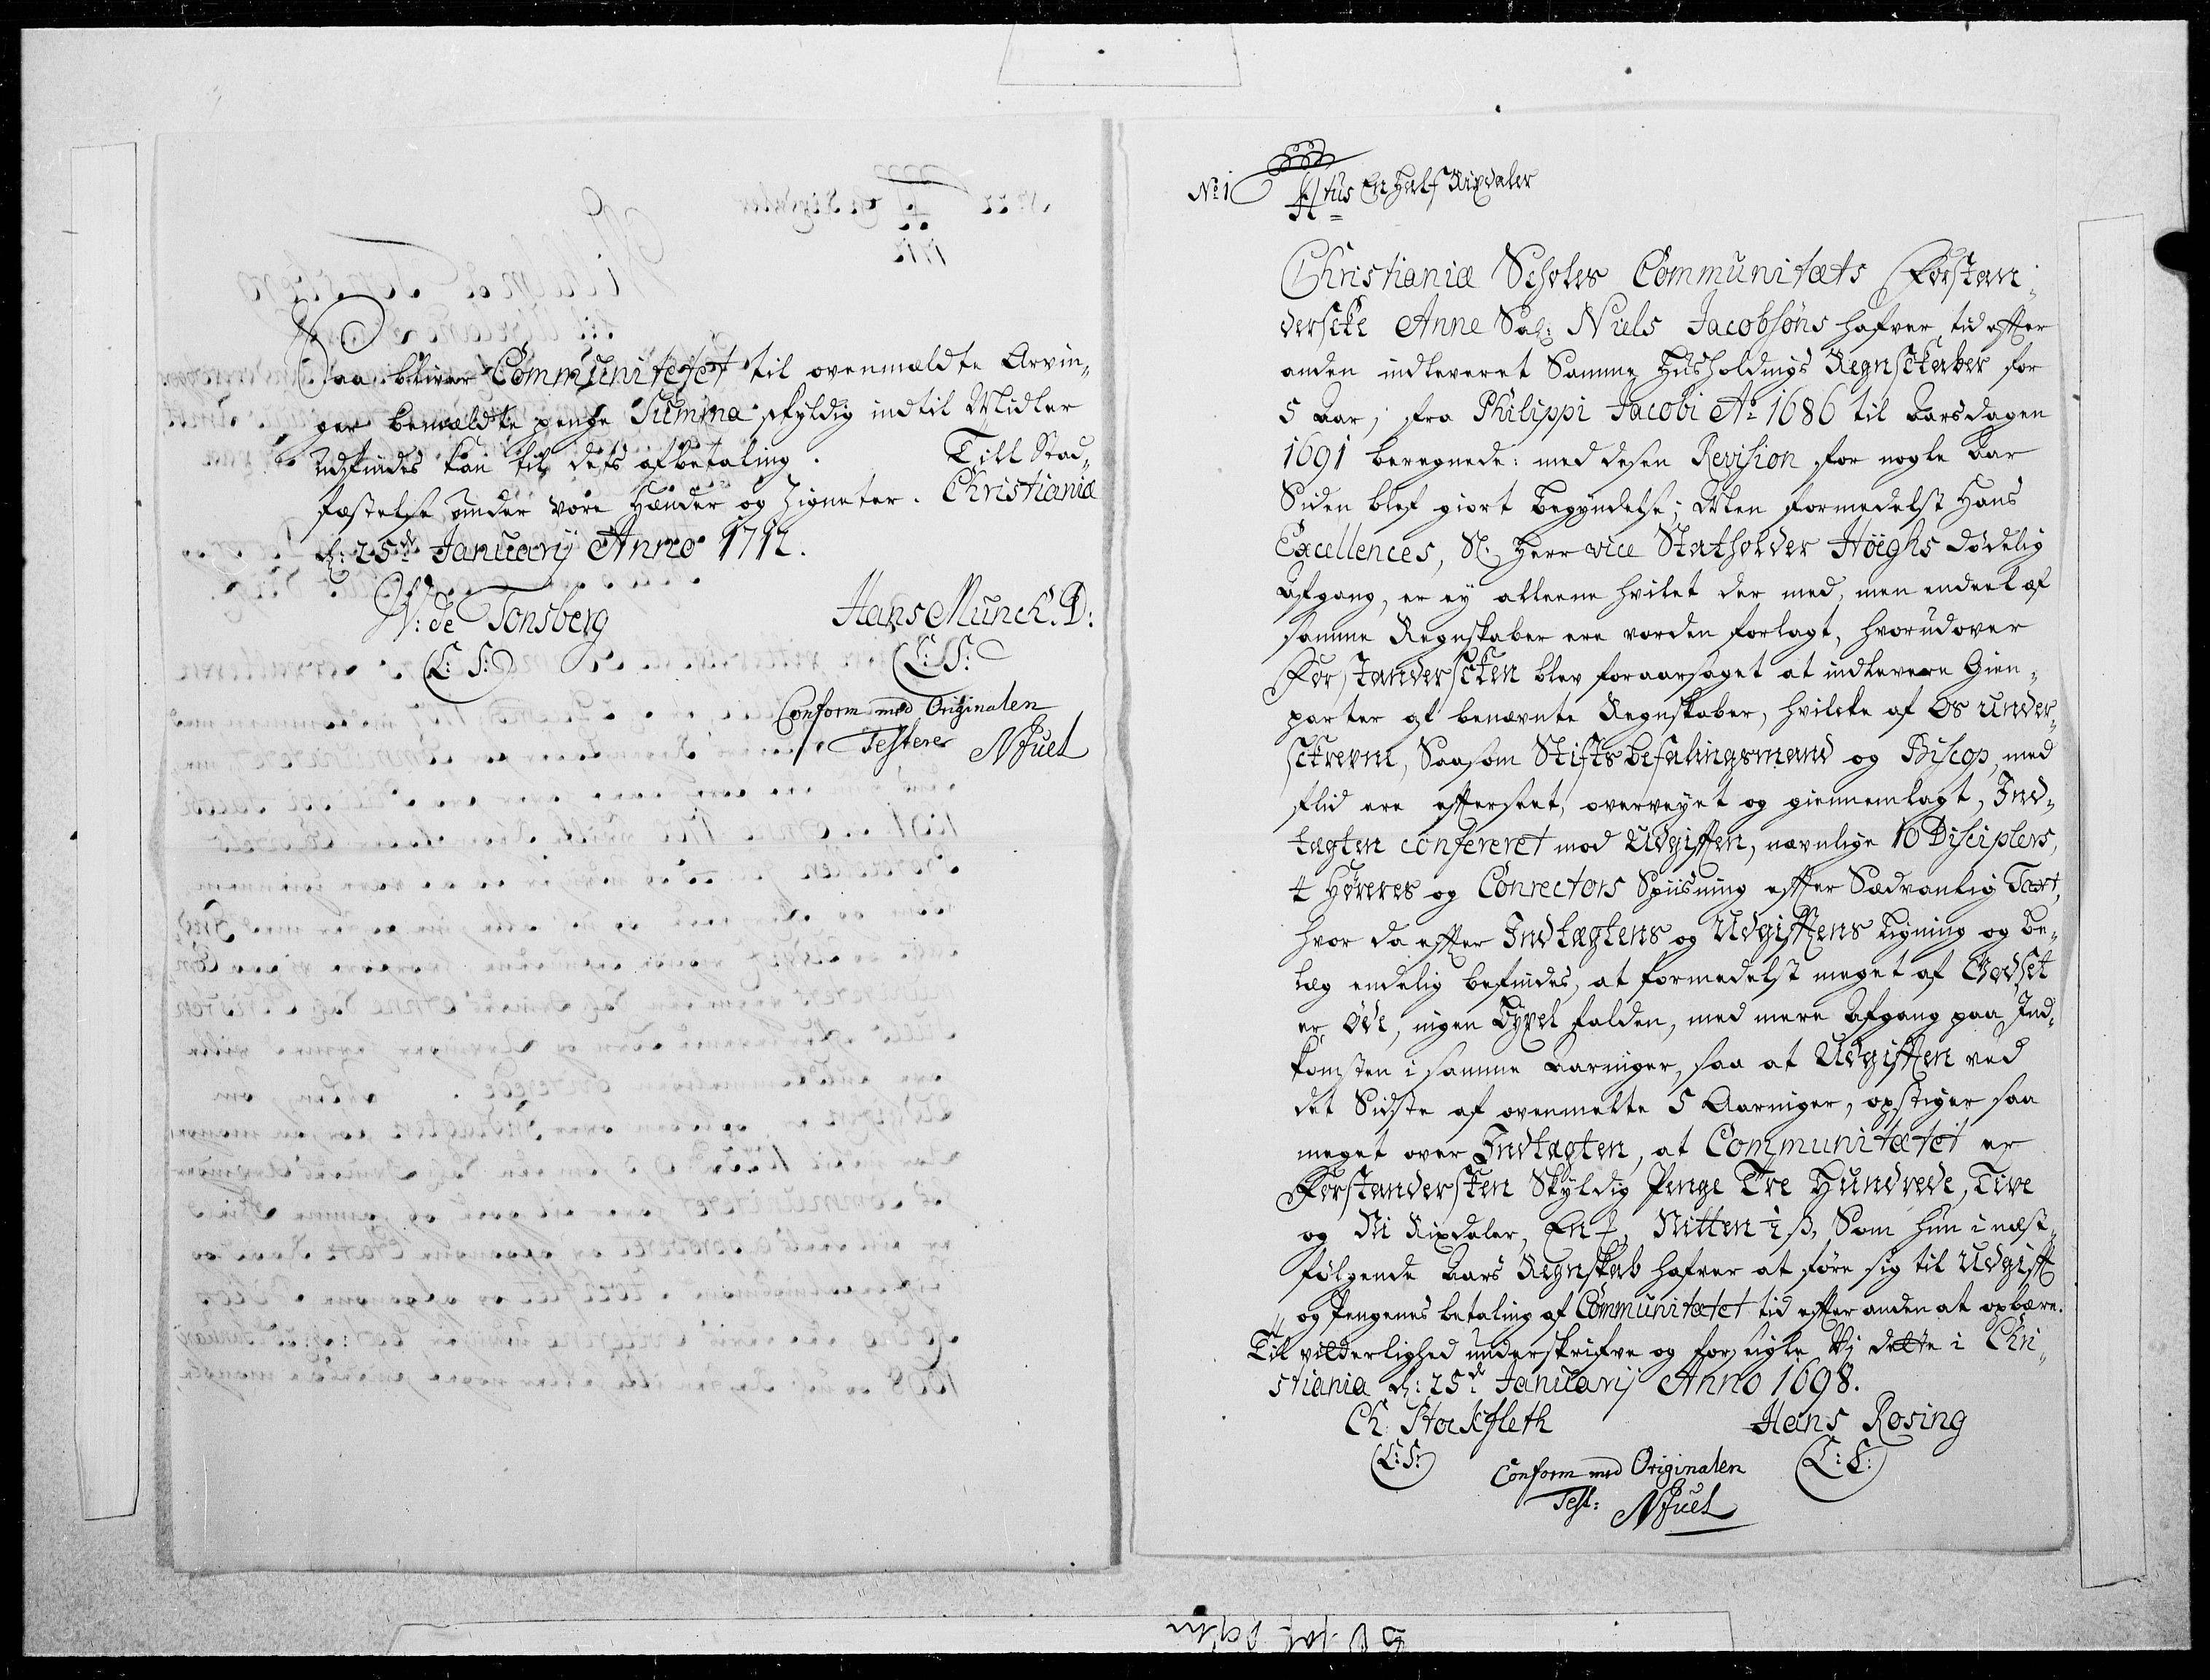 Saa bliver Communitetet til ovenmældte Arvin,,
ger bemældte penge Summa skyldig indtil Midler
udfindes kan til dets afbetaling. Till Stad,,
fæstelse under vore Hænder og Zigneter. Christiania
d: 25de January Anno 1712.
W: de Tonsberg Hans Munch. D:
(L: S:) (L: S:)
Conform med Originalen
Testerer NJuel
No 1
En Half Rixdaler
Christianiæ Scholes Communitæts Forstan,,
derscke Anne Sal: Niels Jacobsøns hafver tid effter
anden indleveret Samme Huusholdnings Regnschaber for
5 Aar, fra Philippi Jacobi Ao 1686 til Aarsdagen
1691 beregnede: med desen Revision for nogle Aar
Siden blef giort begyndelse; Men formedelst Hans
Excellences, Sl. Herr vice Statholder Høeghs dødelig
Afgang, er ey alleene hvilet der med, men endeel af
samme Regnskaber ere vorden forlagt, hvorudover
Forstanderscken blev foraarsaget at indlevere Gien,,
parter af benævnte Regnskaber, hvilcke af Os under,,
sckrevne, Saasom Stiftsbefalingsmand og Biscop, med
flid ere effterseet, overveyet og giennemlagt, Ind,,
tægten confereret mod Udgifften, nævnlige 10 Disciplers,
4 Hørers og Conrectors Spiisning effter Sædvanlig Taxt,
hvor da effter Indtægtens og Udgifftens ligning og be,,
læg endelig befindes, at formedelst meget af Godset
er Øde, ingen Byxel falden, med mere Afgang paa Ind,,
komsten i samme Aaringer, saa at Udgifften ved
det Sidste af ovenmelte 5 Aaringer, opstiger saa
meget over Indtægten, at Communitætet er
Forstandersken Skyldig Penge Tre Hundrede, Tive
og Ni Rixdaler, En ƒ, Nitten ½ ß, Som hun i næst,,
følgende Aars Regnskab hafver at føre sig til Udgifft
og Pengenes betaling af Communitætet tid effter anden at opbære.
Til vitterlighed underskrifve og forseigle Vj dette i Chri,,
stiania d: 25de January Anno 1698.
Ch: Stockfleth Hans Rosing
(L: S:) (L: S:)
Conform med Originalen
Test: NJuel